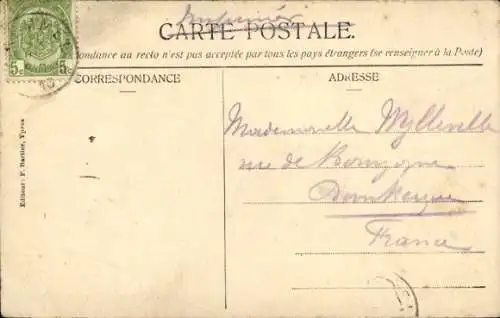 Imprimé
CARTE POSTALE.
ondance au recto n'est pas acceptée par tous les pays étrangers (se renseigner à la Poste)
5c 5c
CORRESPONDANCE
ADRESSE
Mademoiselle Wylleville
rue de Bourgogne
Dunkerque
France
Editeur: F. Bartier, Ypres